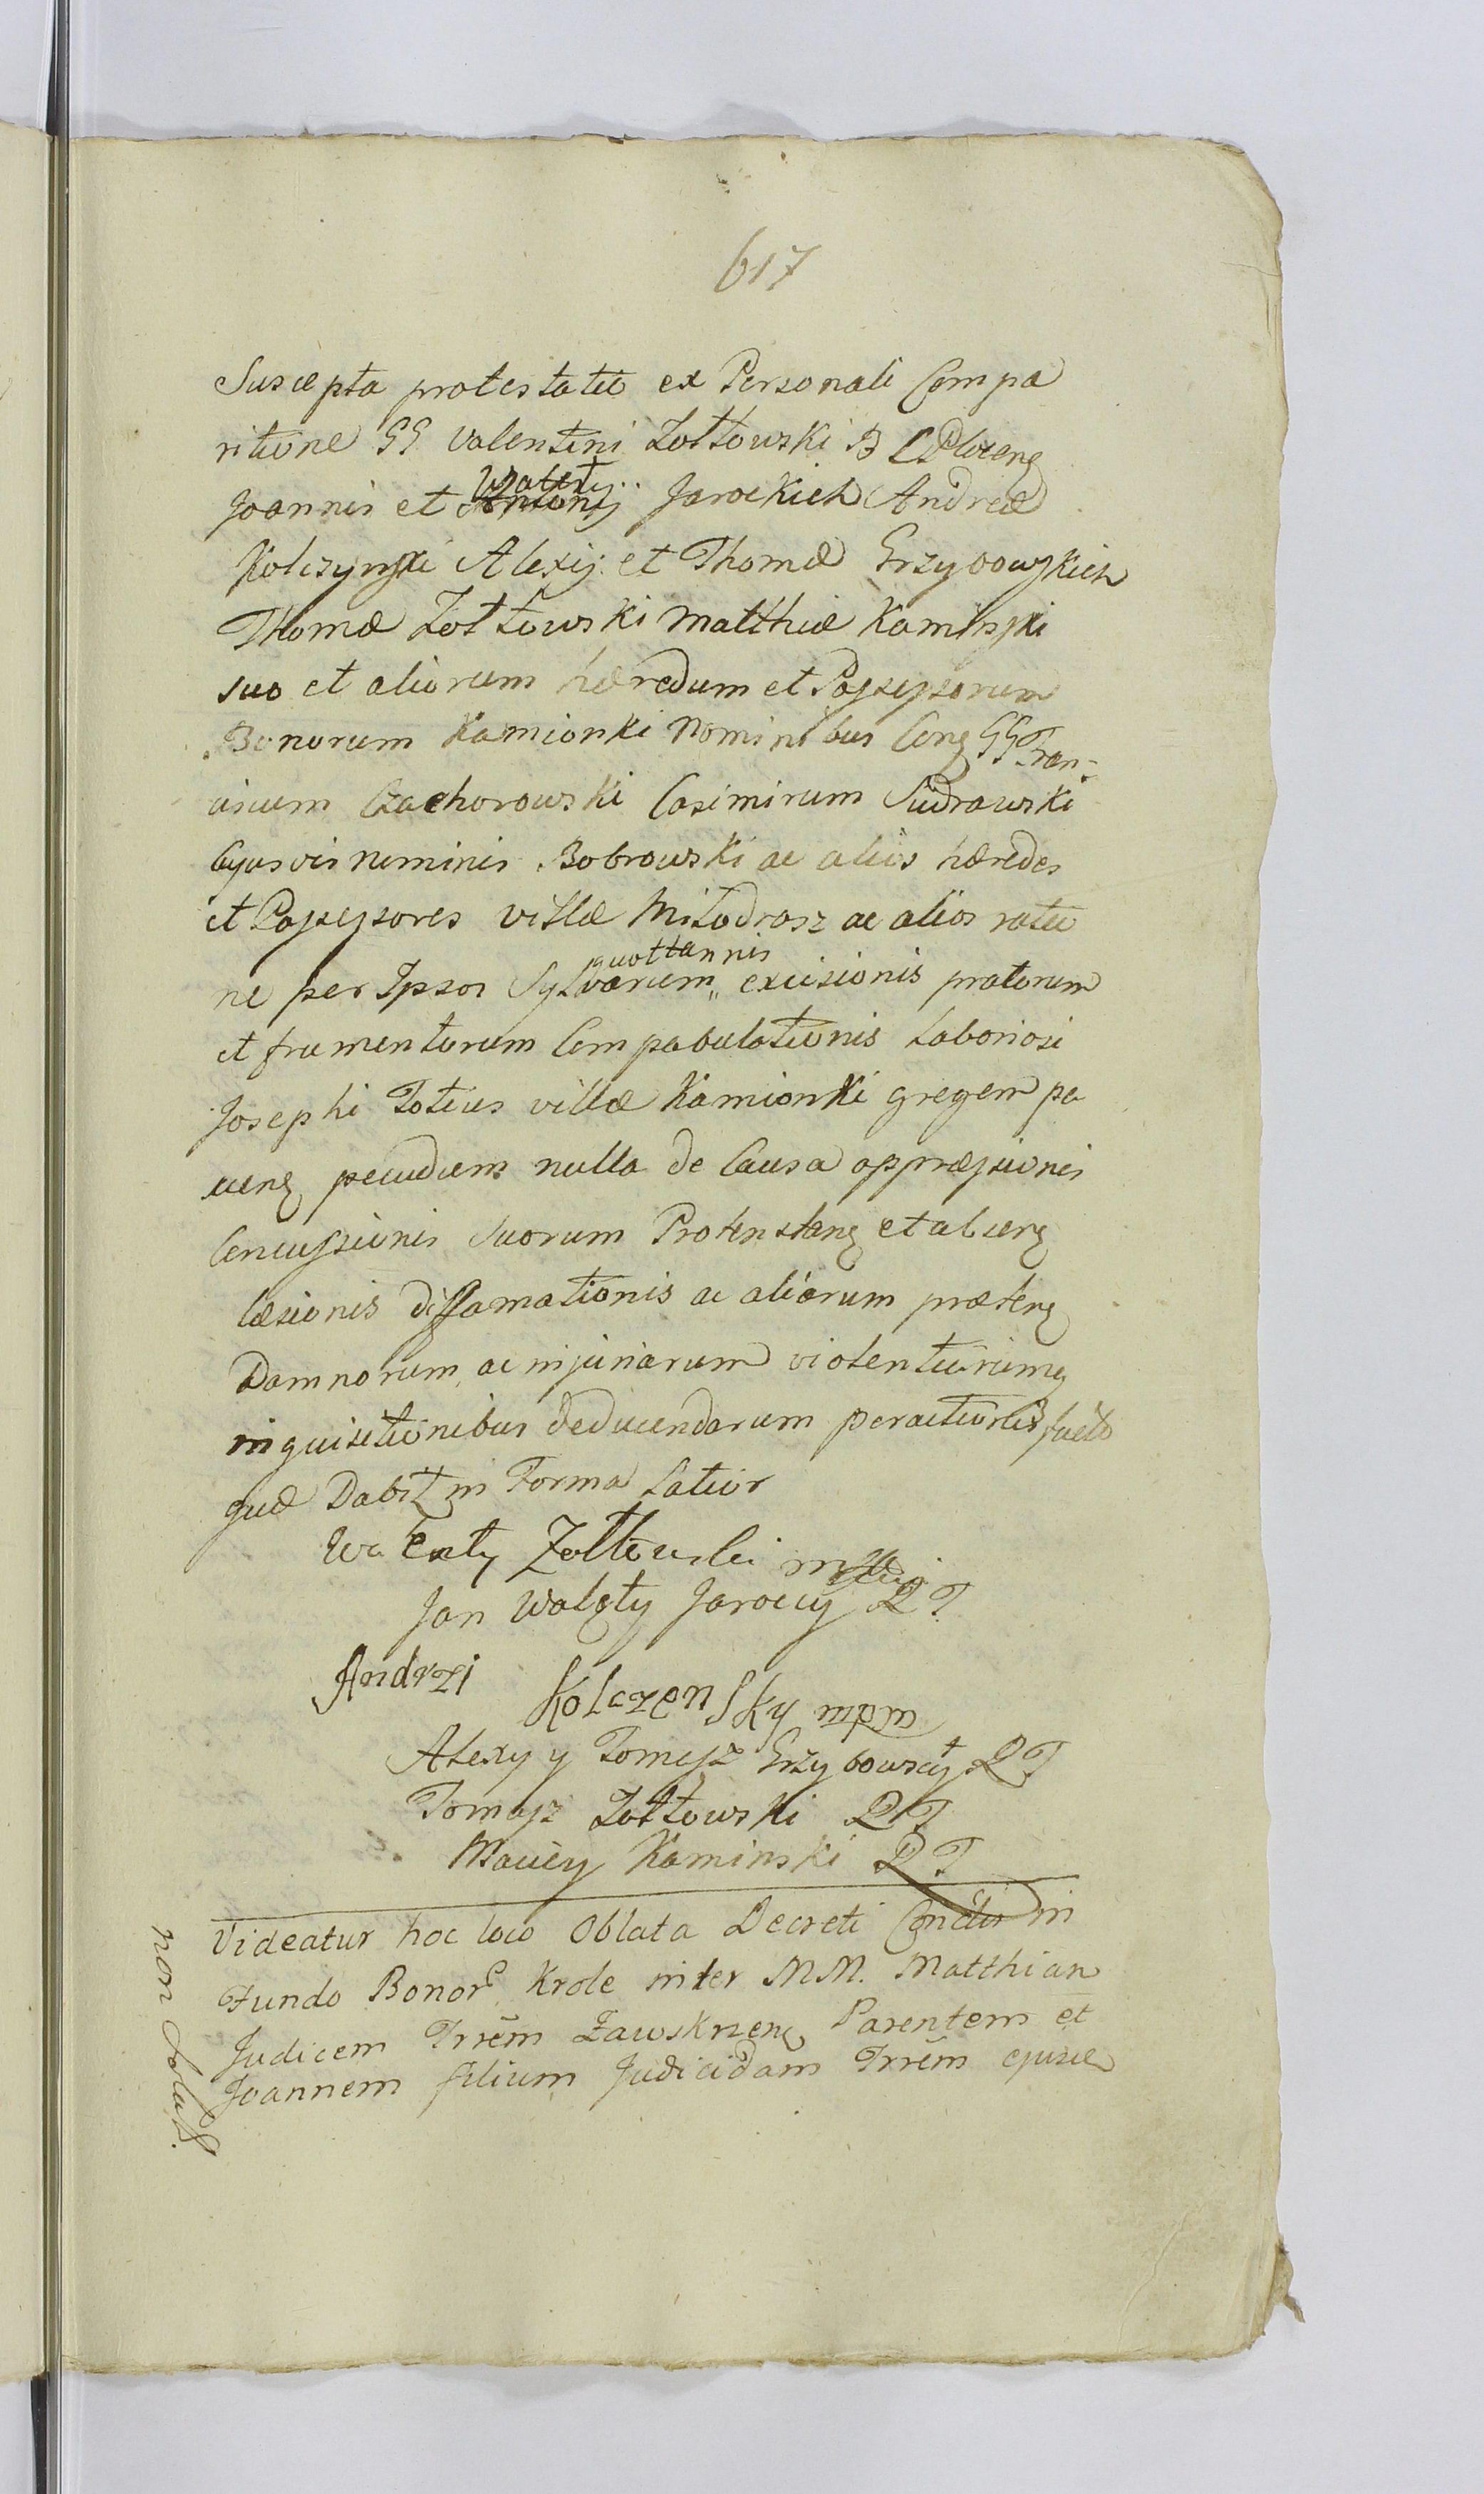 617
Suscepta protestatio ex Personali Compa
ritione GG Valentini Żołtowski B
Joannis et Walenty Jarockich Andreæ
Kolczynski Alexij et Thomæ Grzybowskich
Thomæ Żołtowski Matthiæ Kaminski
suo et aliorum hæredum et Possessorum
Bonorum Kamionki Nominibus Cong GG Fran-
ciscum Czachorowski Casimirum Sudrawski
Cujusvis nominis Bobrowski ac alios hæredes
et Possessores villæ Miłodrosz ac alios ratio
quottannis
ne per Ipsos Sylvarum „ excisionis pratorum
et frumentorum Compabulationis Laboriosi
Josephi Totius villæ Kamionki gregem pa
sceng pecudum nulla de Causa oppræssionis
Concussionis Suorum Protenstang et
læsionis diffamationis ac aliorum præteng
Damnorum ac injuriarum violentiarumq
inquisitionibus deducendarum peractionis facto
quæ Dabit in Forma Latior
Walenty Zołtowski
Jan Walęty Jaroccy QT
Andrzi Kolczensky mpm
Alexy y Tomasz Grzybowscy + QT
Tomasz Żołtowski QT
Maciey Kaminski QT
Videatur hoc loco Oblata Decreti Conditi in
Fundo Bonor Krole inter MM. Matthian
Judicem Trrēm Zawskrzeng Parentem et
Joannem filium Judicidam Trrēm ejusæ
non